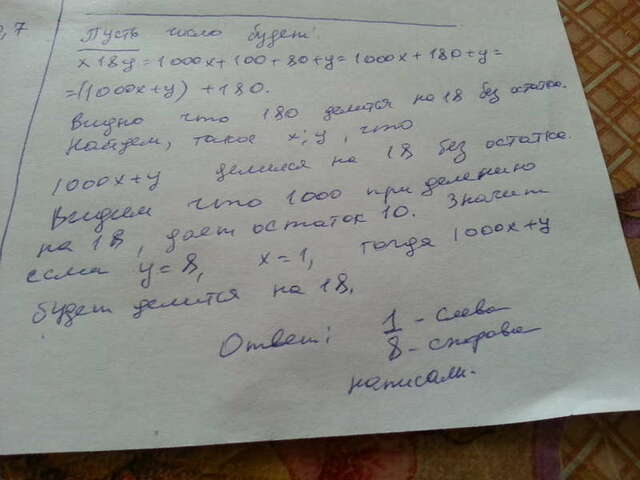 ,7
Пусть число будет:
x18y = 1000x+100+80+y= 1000x+180+y=
=(1000x+y) +180.
Видно что 180 делится на 18 без остатка.
Найдем, такое x; y, что
1000x+y делился на 18 без остатка.
Видием что 1000 при делению
на 18, дает остаток 10. Значит
если y=8, x=1, тогда 1000x+y
будет делится на 18.
Ответ: 1 - слева
8 - справа
написали.